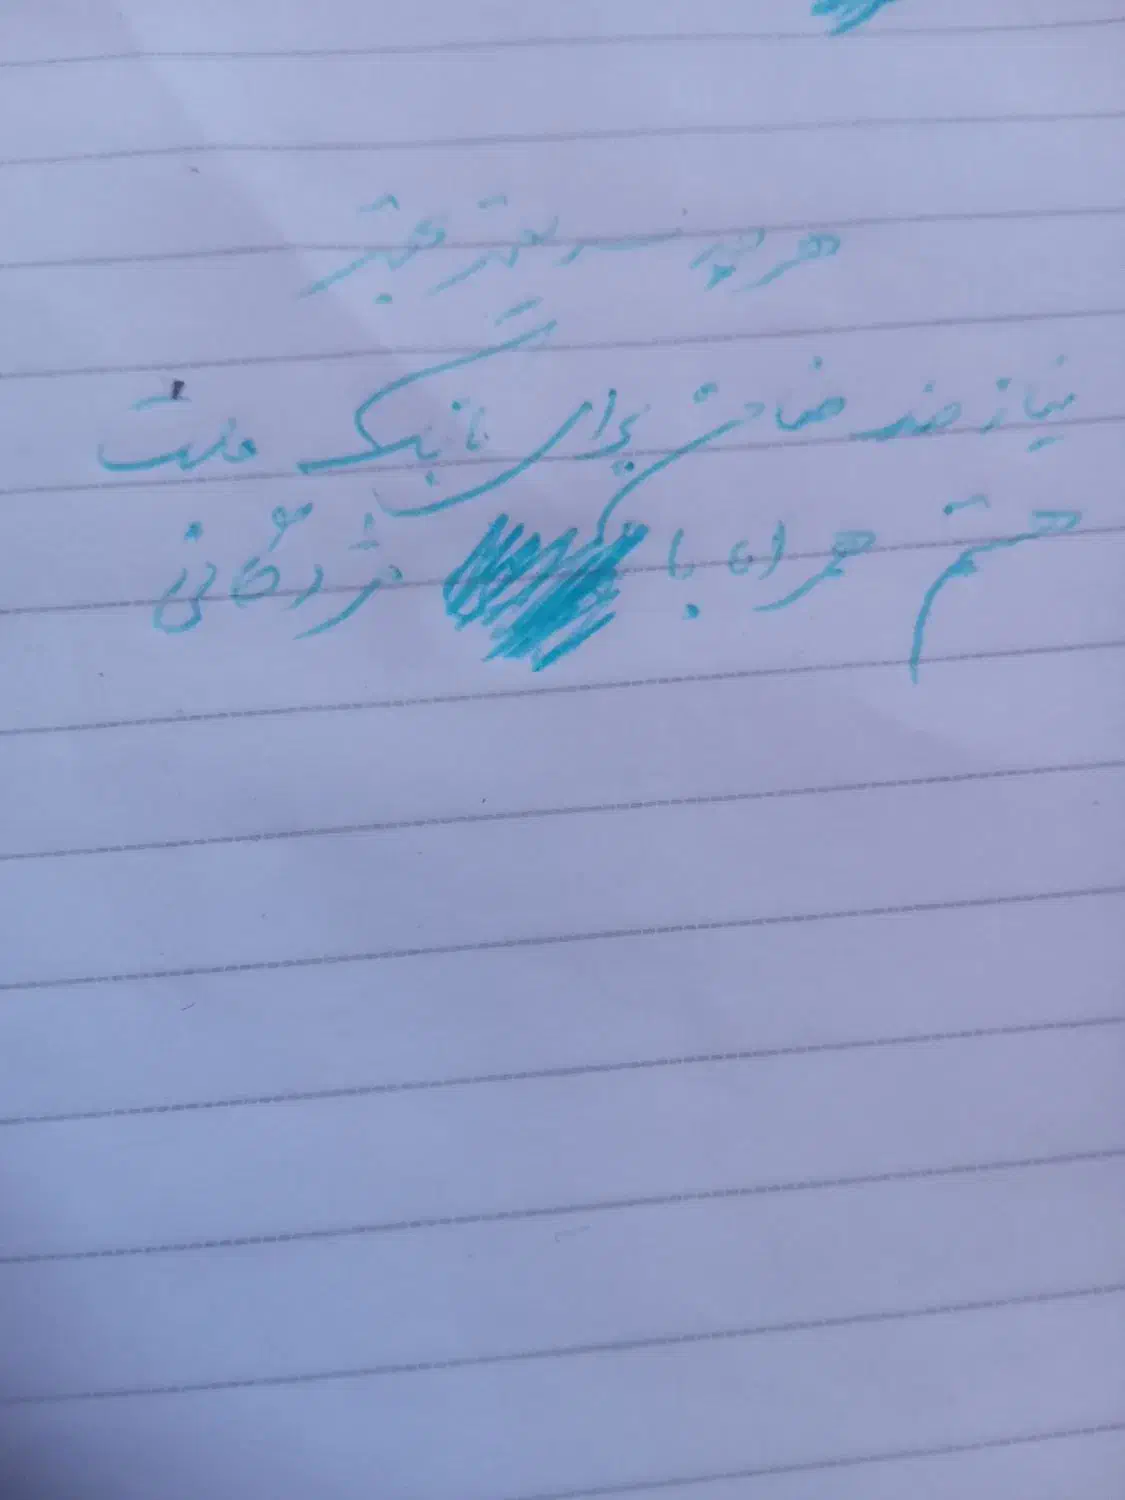 هر چه سریعتر بهتر
نیازمند ضامن برای بانک ملت
هستم همراه با مژدگانی